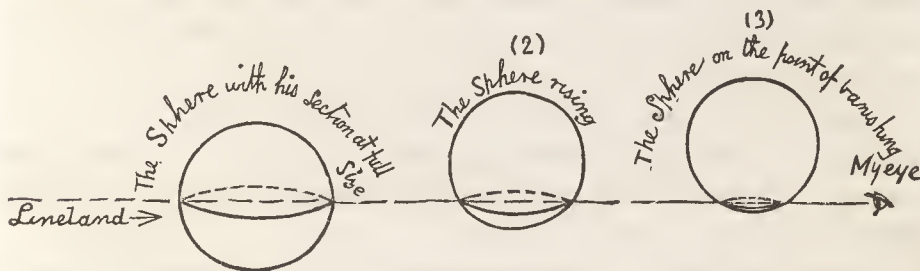 The Sphere with his section at full
Size
(2)
The Sphere rising
(3)
The Sphere on the point of vanishing
My eye
Lineland